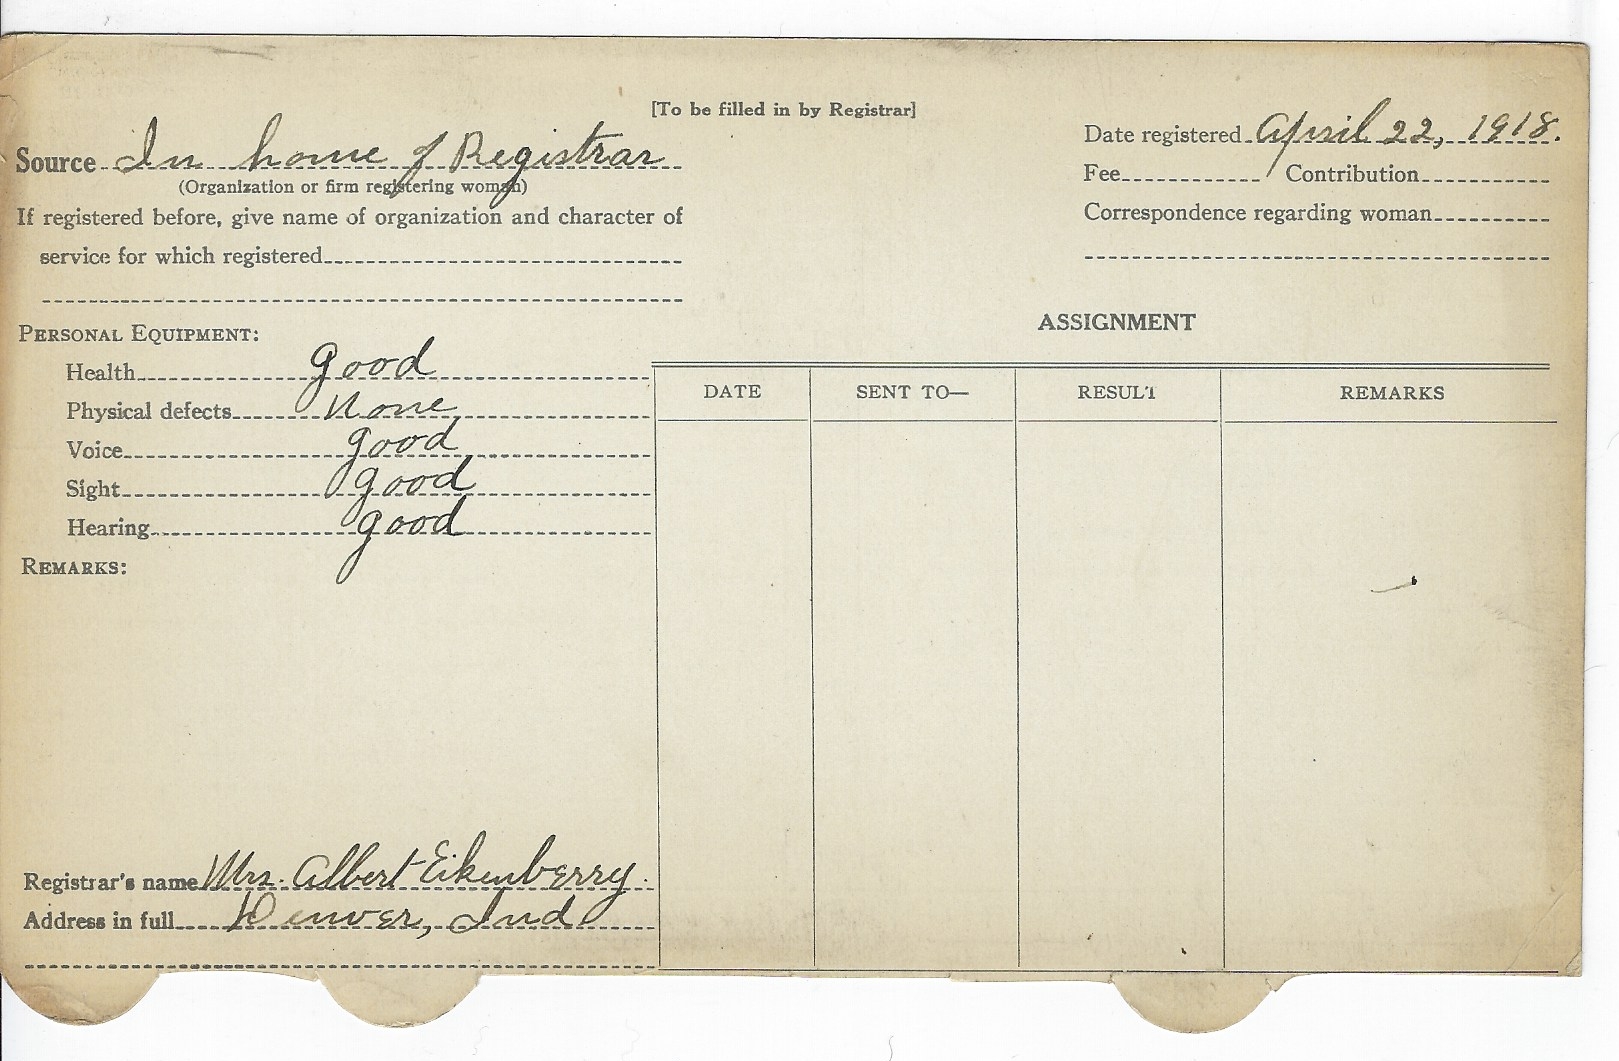 [To be filled in by Registrar]
Source In home of Registrar
(Organization or firm registering woman)
If registered before, give name of organization and character of
service for which registered
Date registered April 22, 1918.
Fee Contribution
Correspondence regarding woman
PERSONAL EQUIPMENT:
Health good
Physical defects None
Voice good
Sight good
Hearing good
REMARKS:
Registrar's name Mrs. Albert Eikenberry.
Address in full Denver, Ind
ASSIGNMENT
DATE SENT TO— RESULT REMARKS